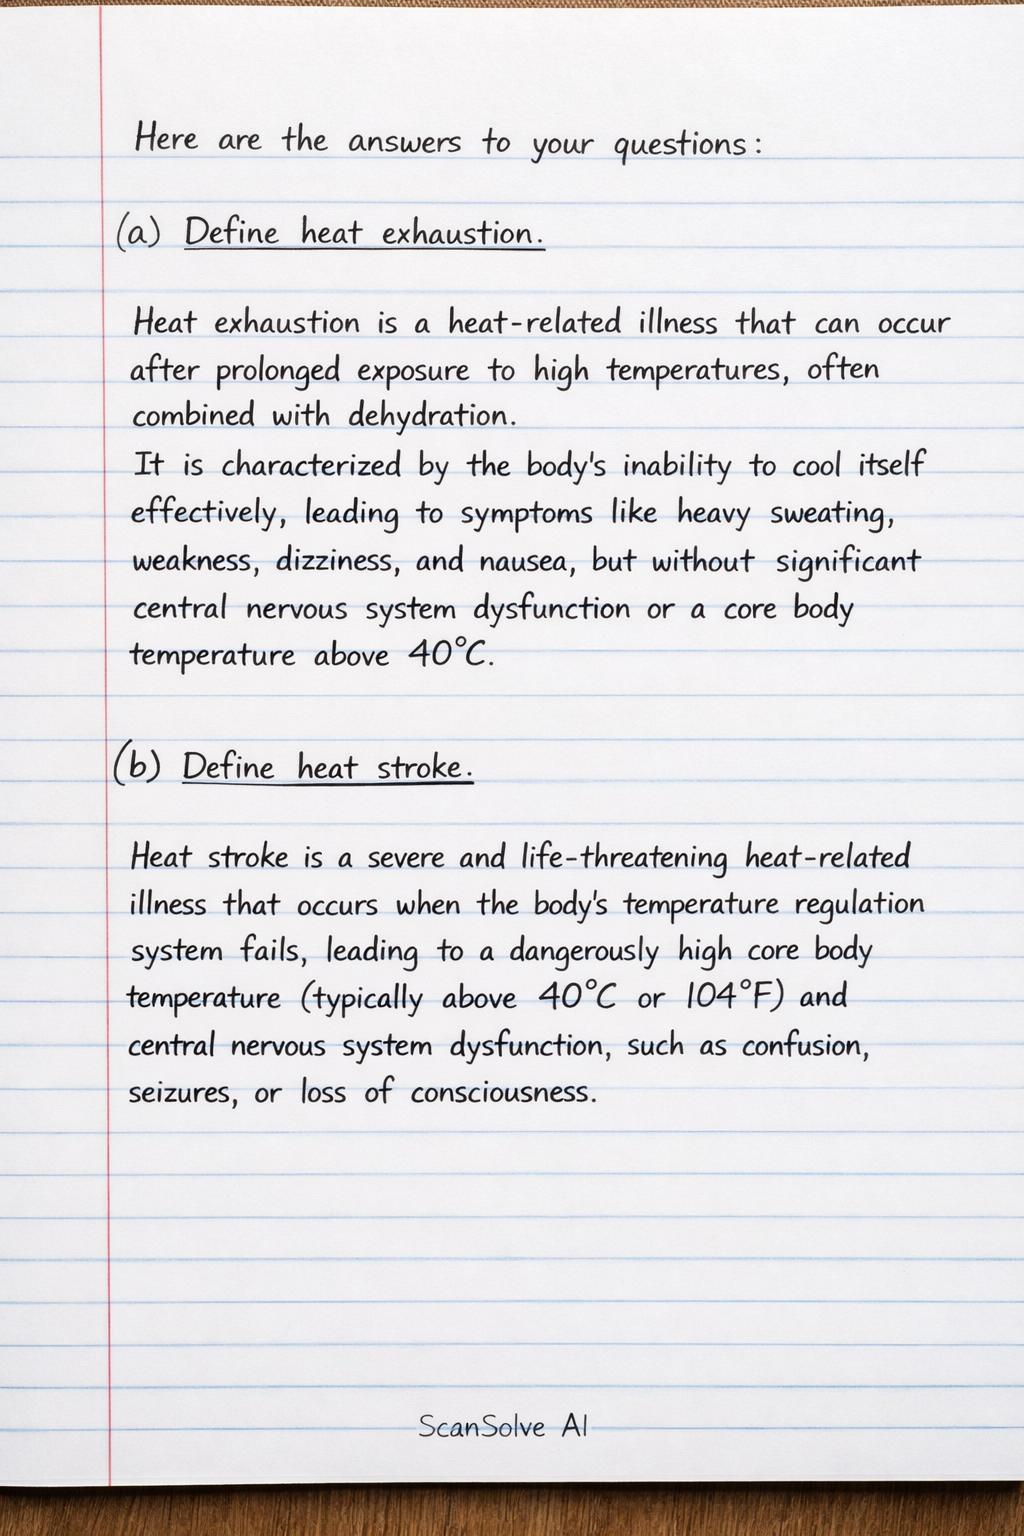 Here are the answers to your questions:
(a) Define heat exhaustion.
Heat exhaustion is a heat-related illness that can occur
after prolonged exposure to high temperatures, often
combined with dehydration.
It is characterized by the body's inability to cool itself
effectively, leading to symptoms like heavy sweating,
weakness, dizziness, and nausea, but without significant
central nervous system dysfunction or a core body
temperature above 40°C.
(b) Define heat stroke.
Heat stroke is a severe and life-threatening heat-related
illness that occurs when the body's temperature regulation
system fails, leading to a dangerously high core body
temperature (typically above 40°C or 104°F) and
central nervous system dysfunction, such as confusion,
seizures, or loss of consciousness.
ScanSolve AI